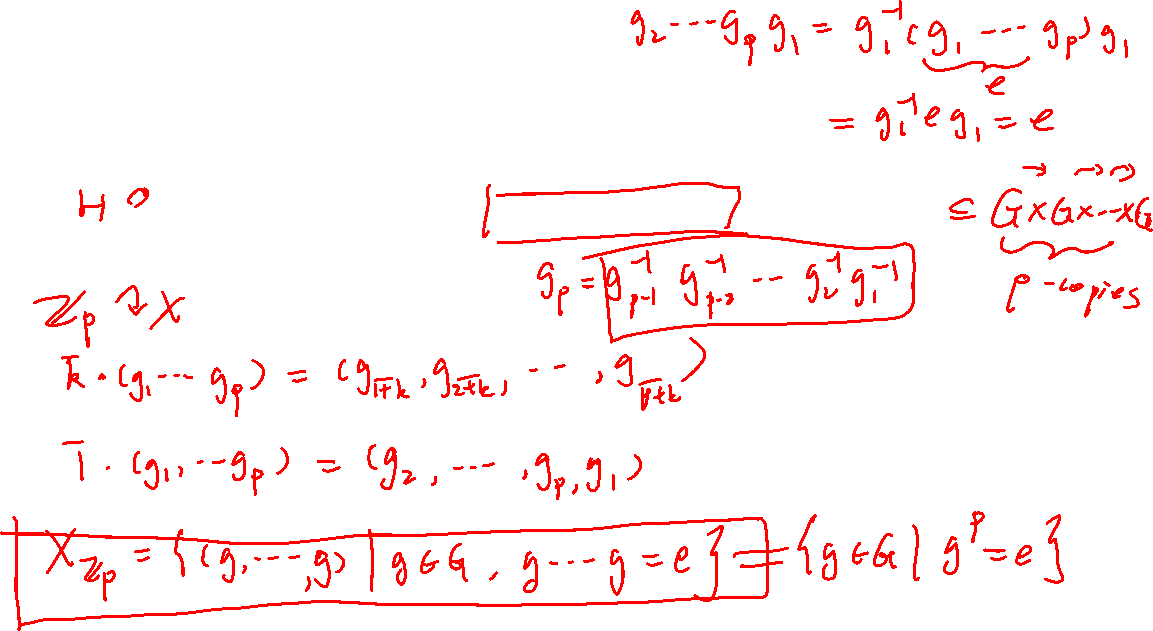 g₂ ⋯ g_p g₁ = g₁⁻¹ (g₁ ⋯ g_p) g₁
e
= g₁⁻¹ e g₁ = e
⊆ G × G × ⋯ × G
p-copies
g_p = g_{p-1}⁻¹ g_{p-2}⁻¹ ⋯ g₂⁻¹ g₁⁻¹
ℤ_p ↷ X
k̄ · (g₁ ⋯ g_p) = (g_{\overline{1+k}}, g_{\overline{2+k}}, ⋯, g_{\overline{p+k}})
1̄ · (g₁, ⋯ g_p) = (g₂, ⋯, g_p, g₁)
X_{ℤ_p} = {(g, ⋯, g) | g ∈ G, g ⋯ g = e} = {g ∈ G | g^p = e}